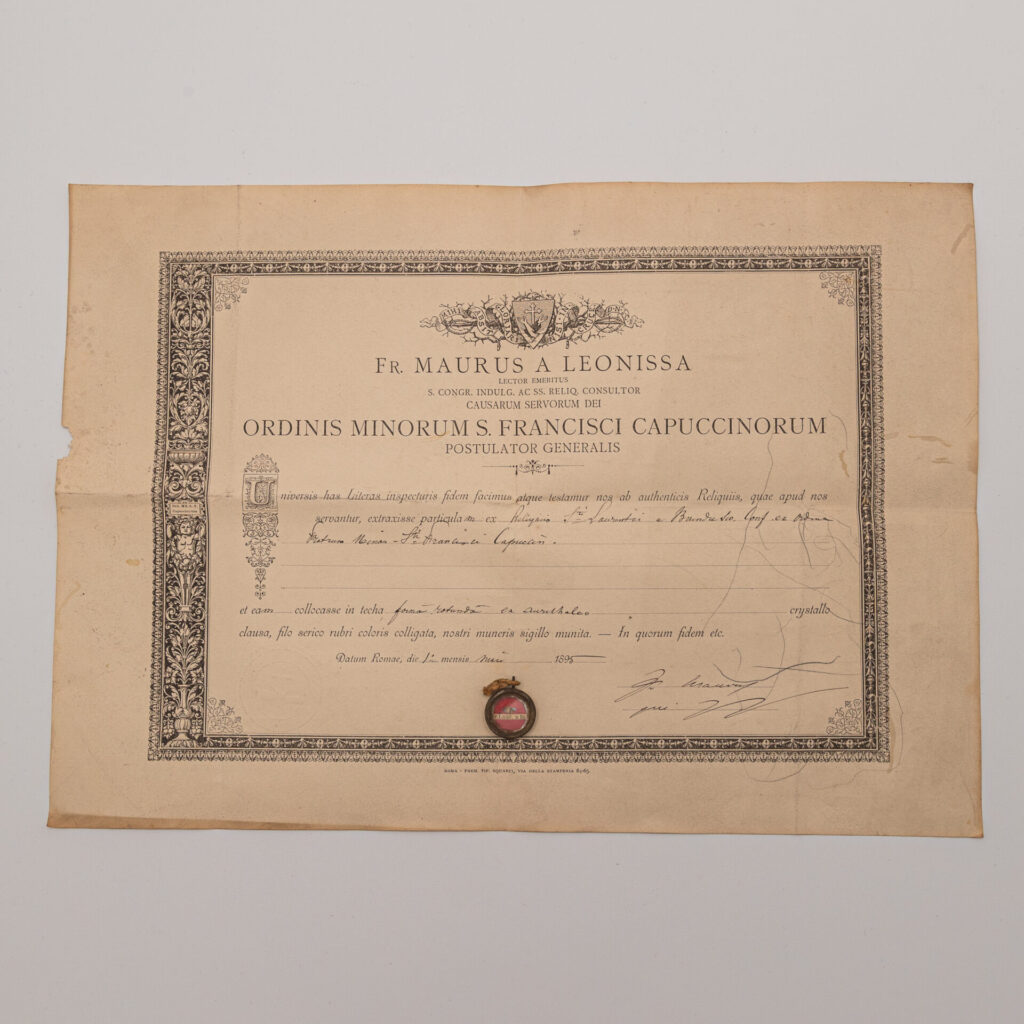 FR. MAURUS A LEONISSA
LECTOR EMERITUS
S. CONGR. INDULG. AC SS. RELIQ. CONSULTOR
CAUSARUM SERVORUM DEI
ORDINIS MINORUM S. FRANCISCI CAPUCCINORUM
POSTULATOR GENERALIS
Universis has Literas inspecturis fidem facimus atque testamur nos ab authenticis Reliquiis, quae apud nos
servantur, extraxisse particulam ex Reliquiis Sti Laurentii a Brundusio, Conf ex Ordine
Fratrum Minor. Sti Francisci Capuccin.
et eam collocasse in theca formâ rotundâ ex aurichalco crystallo
clausa, filo serico rubri coloris colligata, nostri muneris sigillo munita. — In quorum fidem etc.
Datum Romae, die 1a mensis 1895
ROMA - PREM. TIP. SQUARCI, VIA DELLA STAMPERIA 64-65